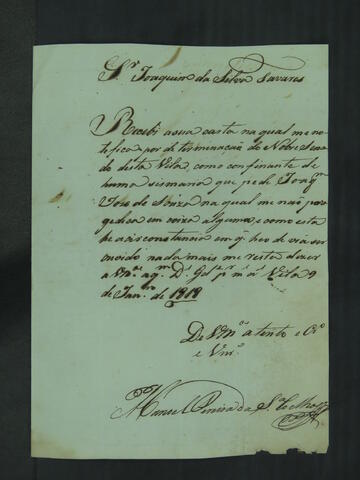 S.r Joaquim da Silva Tavares
Recebi a sua carta na qual me no-
tifica por determinação do Nobre Sena-
do desta Vila, como confinante de
huma sismaria que pede Joaq.m
Jose de Souza na qual me não pre-
gedica em coiza alguma e como esta
he a circonstancia em q. hes devia ser
ouvido nada mais me resta dizer
a Vm.ce a q.m D.s G.e Vila 9
de Jan.ro de 1818
De Vm.ce atento e Cr.o
e Vnr.
Manoel Pereira da S.a Coelho